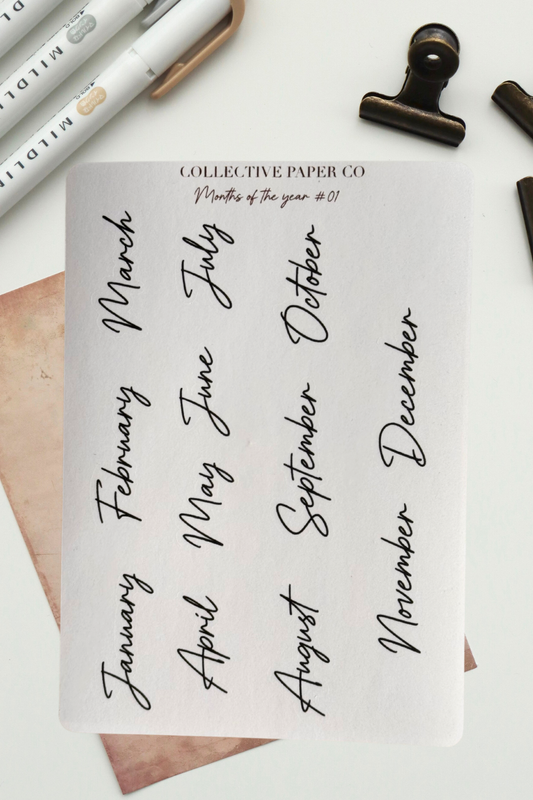 COLLECTIVE PAPER CO
Months of the year #01
January February March
April May June July
August September October
November December
MILDLI
MILDLI
MILDLIN